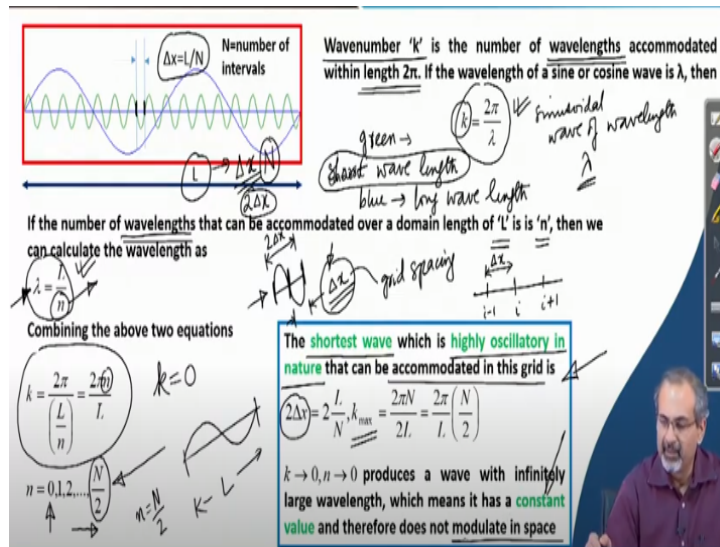 Δx=L/N
N=number of
intervals
L → Δx N
2Δx
Wavenumber 'k' is the number of wavelengths accommodated
within length 2π. If the wavelength of a sine or cosine wave is λ, then
k = 2π/λ
sinusoidal
wave of wavelength
λ
green →
short wave length
blue → long wave length
If the number of wavelengths that can be accommodated over a domain length of 'L' is is 'n', then we
can calculate the wavelength as
λ = L/n
2Δx
Δx
grid spacing
Δx
i-1 i i+1
Combining the above two equations
k = 2π/(L/n) = 2πn/L
k=0
n = 0,1,2,...,N/2
n=N/2
K L
The shortest wave which is highly oscillatory in
nature that can be accommodated in this grid is
2Δx = 2 L/N, k max = 2πN/2L = 2π/L (N/2)
k → 0, n → 0 produces a wave with infinitely
large wavelength, which means it has a constant
value and therefore does not modulate in space